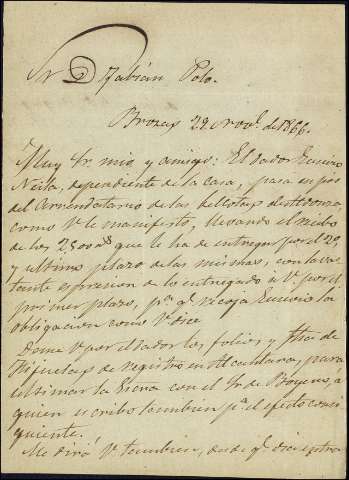 Sr. D. Fabián Polo.
Brozas 29 Nove. de 1866.
Muy Sr. mio y amigo: El dador Eusevio
Neila, dependiente de la casa, pasa en pos
del Arrendatario de las
como V. le manifesto, llevando el recibo
de los que le ha de entregar por el 2º,
y ultimo plazo de las mismas, con la
expresion de lo entregado á V. por el
primer plazo, pa. q. recoja Eusevio la
obligacion como V. dice
Deme V. por el dador los folios y fhas de
Hipotecas de registro en Alcantara, para
ultimar la con el Sr. de á
quien escribo tambien pa. el efecto consi
guiente.
Me dirá V. tambien, desde q. dia entra